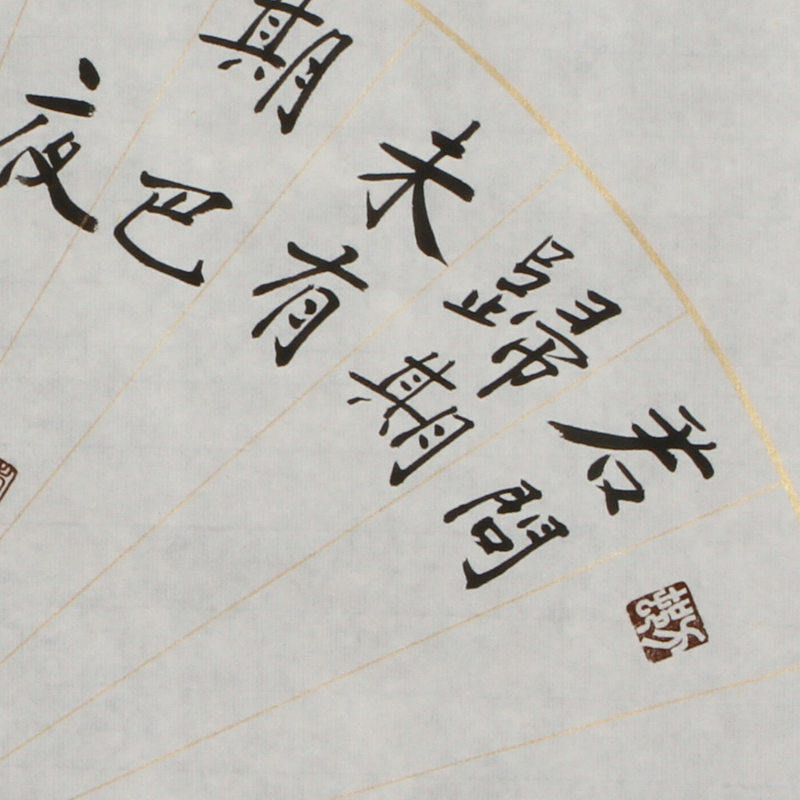 君問
歸期
未有
期巴
夜